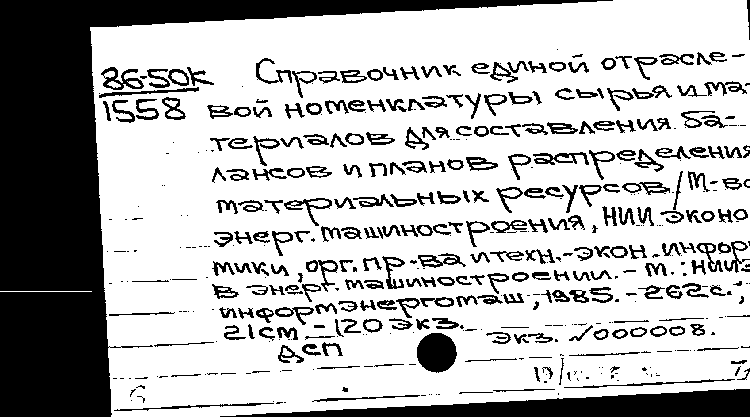 86-50к Справочник единой отрасле-
1558 вой номенклатуры сырья и ма-
териалов для составления ба-
лансов и планов распределения
материальных ресурсов / М-во
энерг. машиностроения, НИИ эконо
мики, орг. пр-ва и техн.-экон. инфор
в энерг. машиностроении. - М.: НИИЭ
информэнергомаш, 1985. - 262с.;
21см. - 120 экз.
ДСП экз. √000008.
6